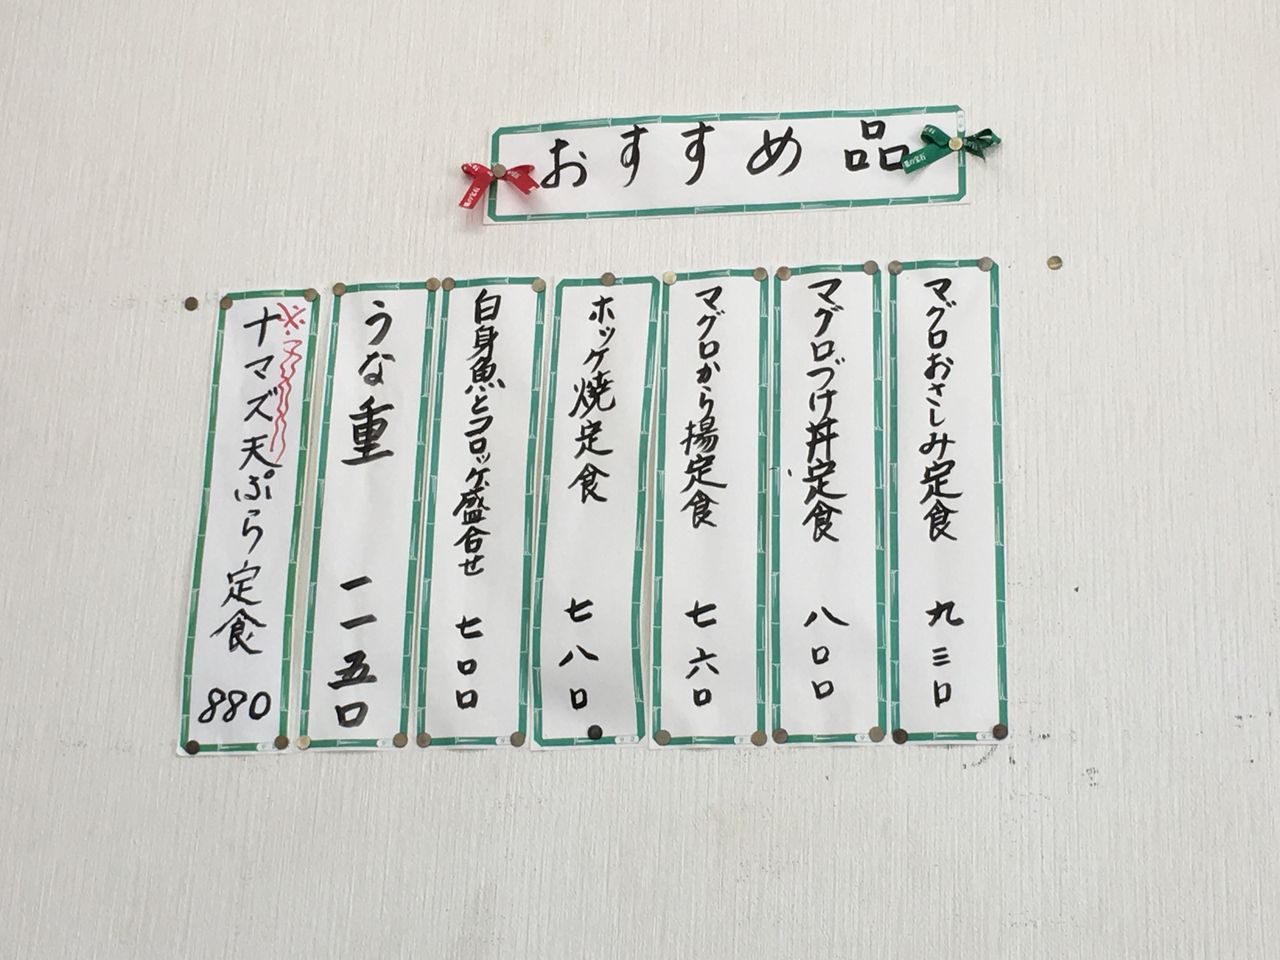 おすすめ品
マグロおさしみ定食 九三〇
マグロづけ丼定食 八〇〇
マグロから揚定食 七六〇
ホッケ焼定食 七八〇
白身魚とコロッケ盛合せ 七〇〇
うな重 一一五〇
※ナマズ天ぷら定食 880